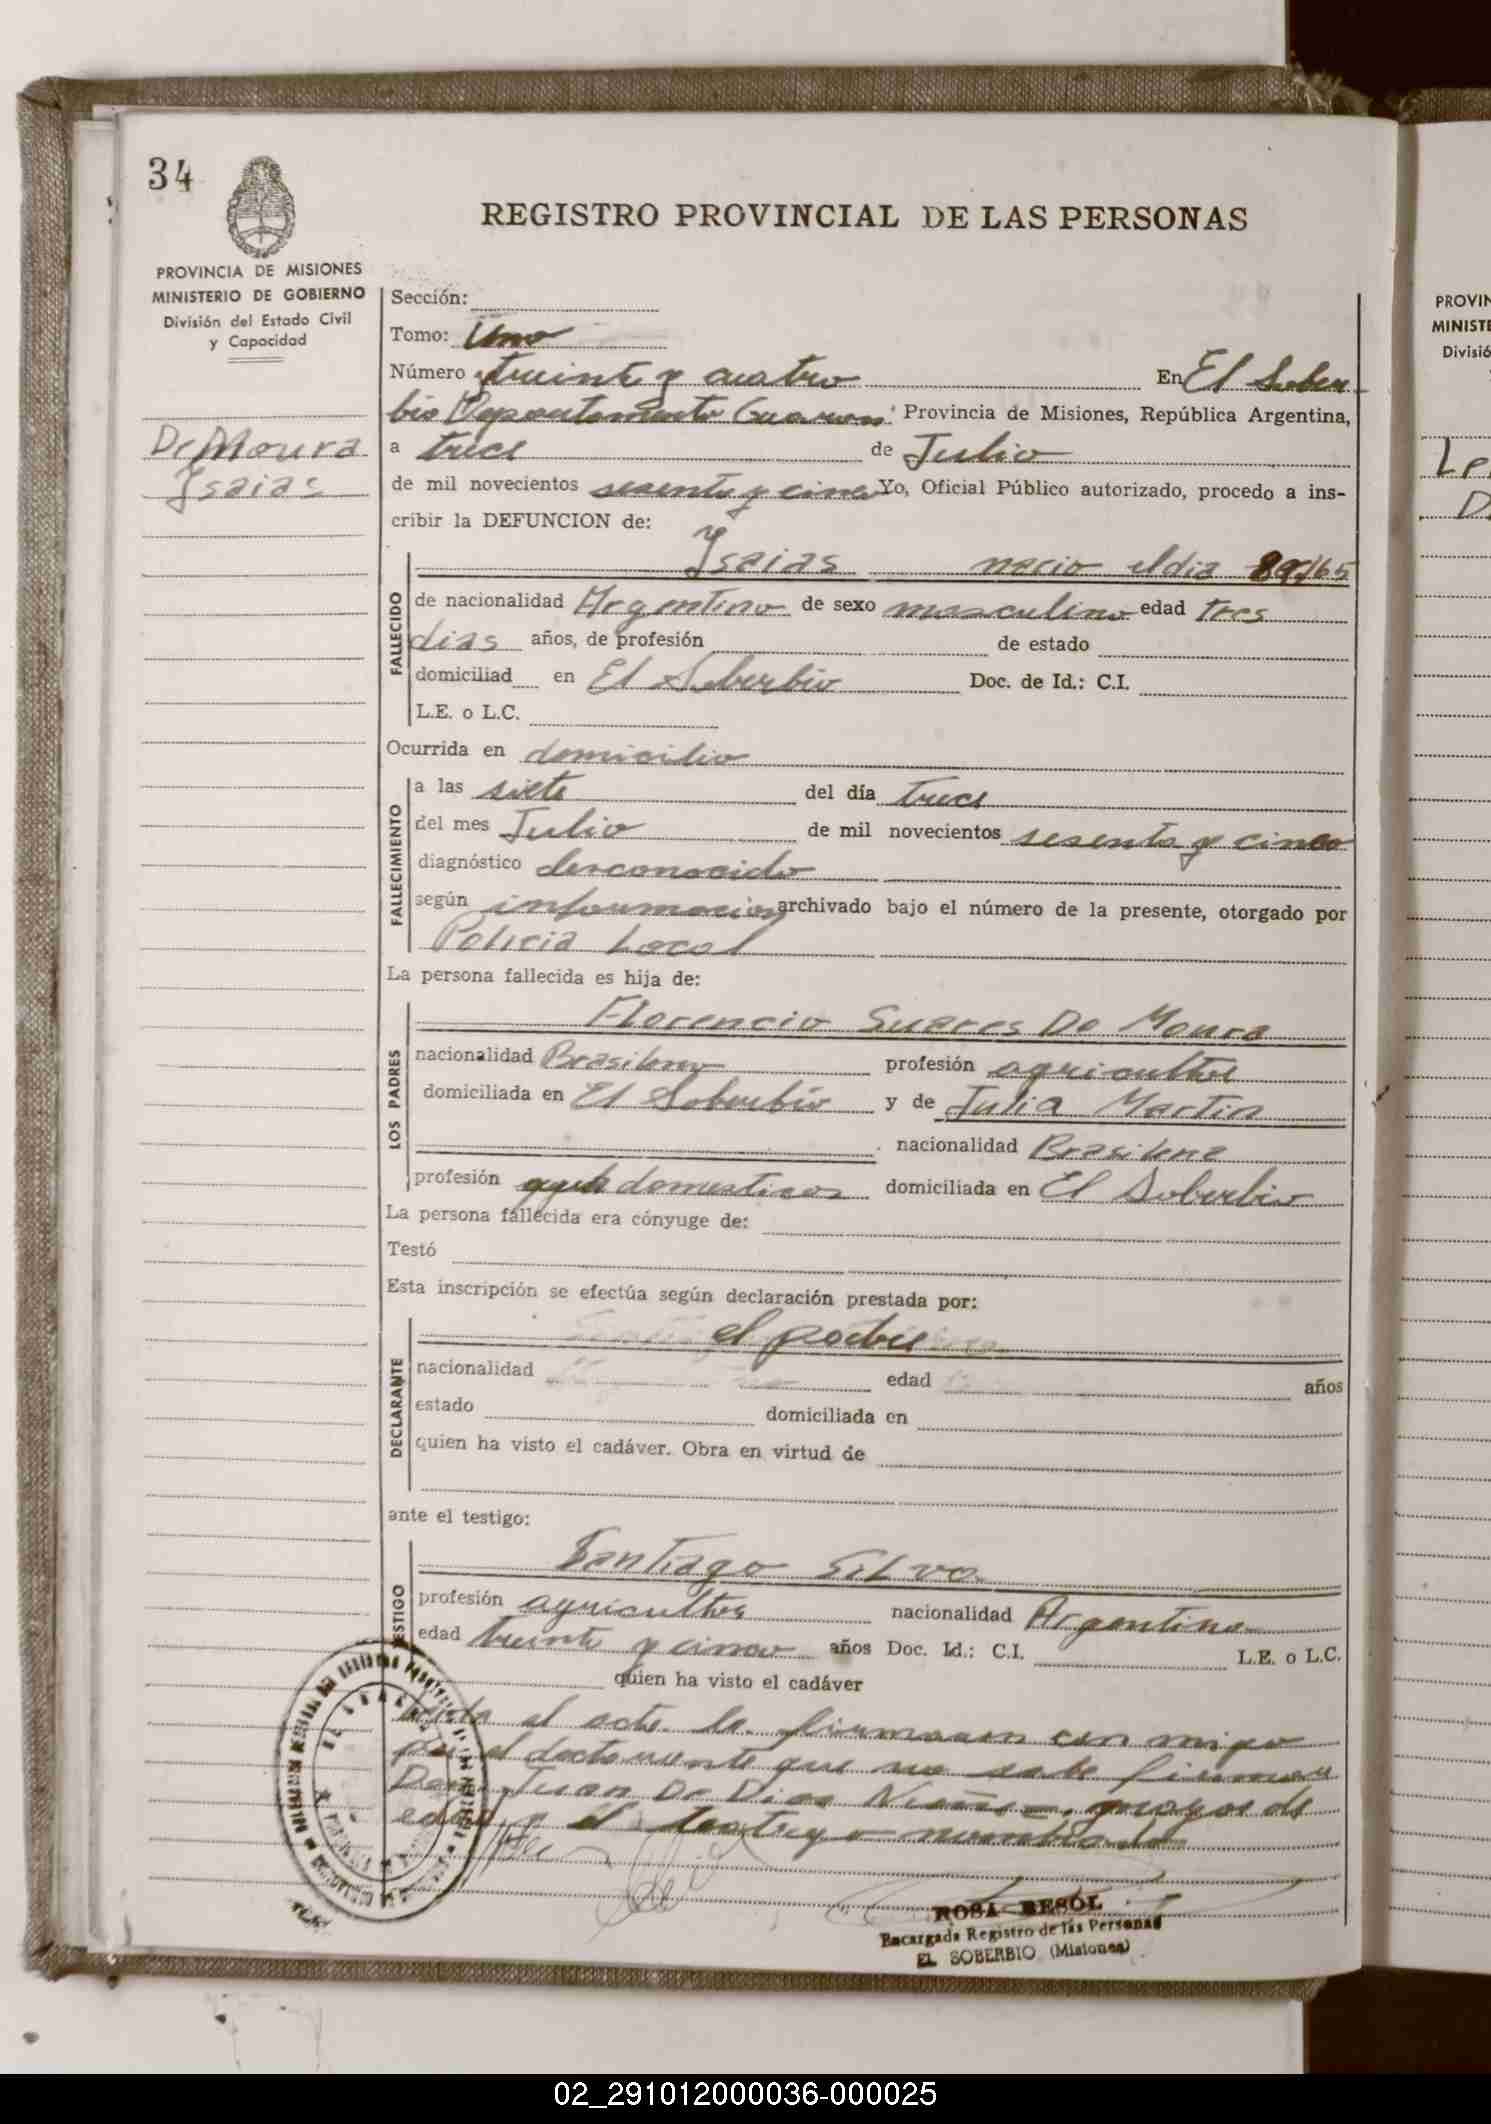 34
REGISTRO PROVINCIAL DE LAS PERSONAS
PROVINCIA DE MISIONES
MINISTERIO DE GOBIERNO
División del Estado Civil
y Capacidad
De Moura
Isaias
Sección:
Tomo: Uno
Número treinta y cuatro En El Sober
bio Departamento Guarani Provincia de Misiones, República Argentina,
a trece de Julio
de mil novecientos sesenta y cinco Yo, Oficial Público autorizado, procedo a ins-
cribir la DEFUNCION de:
Isaias nacio el dia
FALLECIDO
de nacionalidad Argentino de sexo masculino edad tres
dias años, de profesión de estado
domiciliad en El Soberbio Doc. de Id.: C.I.
L.E. o L.C.
Ocurrida en domicilio
FALLECIMIENTO
a las siete del día trece
del mes Julio de mil novecientos sesenta y cinco
diagnóstico desconocido
según informacion archivado bajo el número de la presente, otorgado por
Policia Local
La persona fallecida es hija de:
LOS PADRES
Florencio Suares De Moura
nacionalidad Brasileno profesión agricultor
domiciliada en El Soberbio y de Julia Martin
nacionalidad Brasilena
profesión domesticos domiciliada en El Soberbio
La persona fallecida era cónyuge de:
Testó
Esta inscripción se efectúa según declaración prestada por:
DECLARANTE
el padre
nacionalidad edad años
estado domiciliada en
quien ha visto el cadáver. Obra en virtud de
ante el testigo:
TESTIGO
Santiago Silva
profesión agricultor nacionalidad Argentino
edad treinta y cinco años Doc. Id.: C.I. L.E. o L.C.
quien ha visto el cadáver
el acta la firmaran con migo
por el que no sabe firmar
Don Juan De Dios mayor de
edad y el testigo nombrado
ROSA RESOL
Encargada Registro de las Personas
EL SOBERBIO (Misiones)
PROVIN
MINISTE
Divisió
02_291012000036-000025